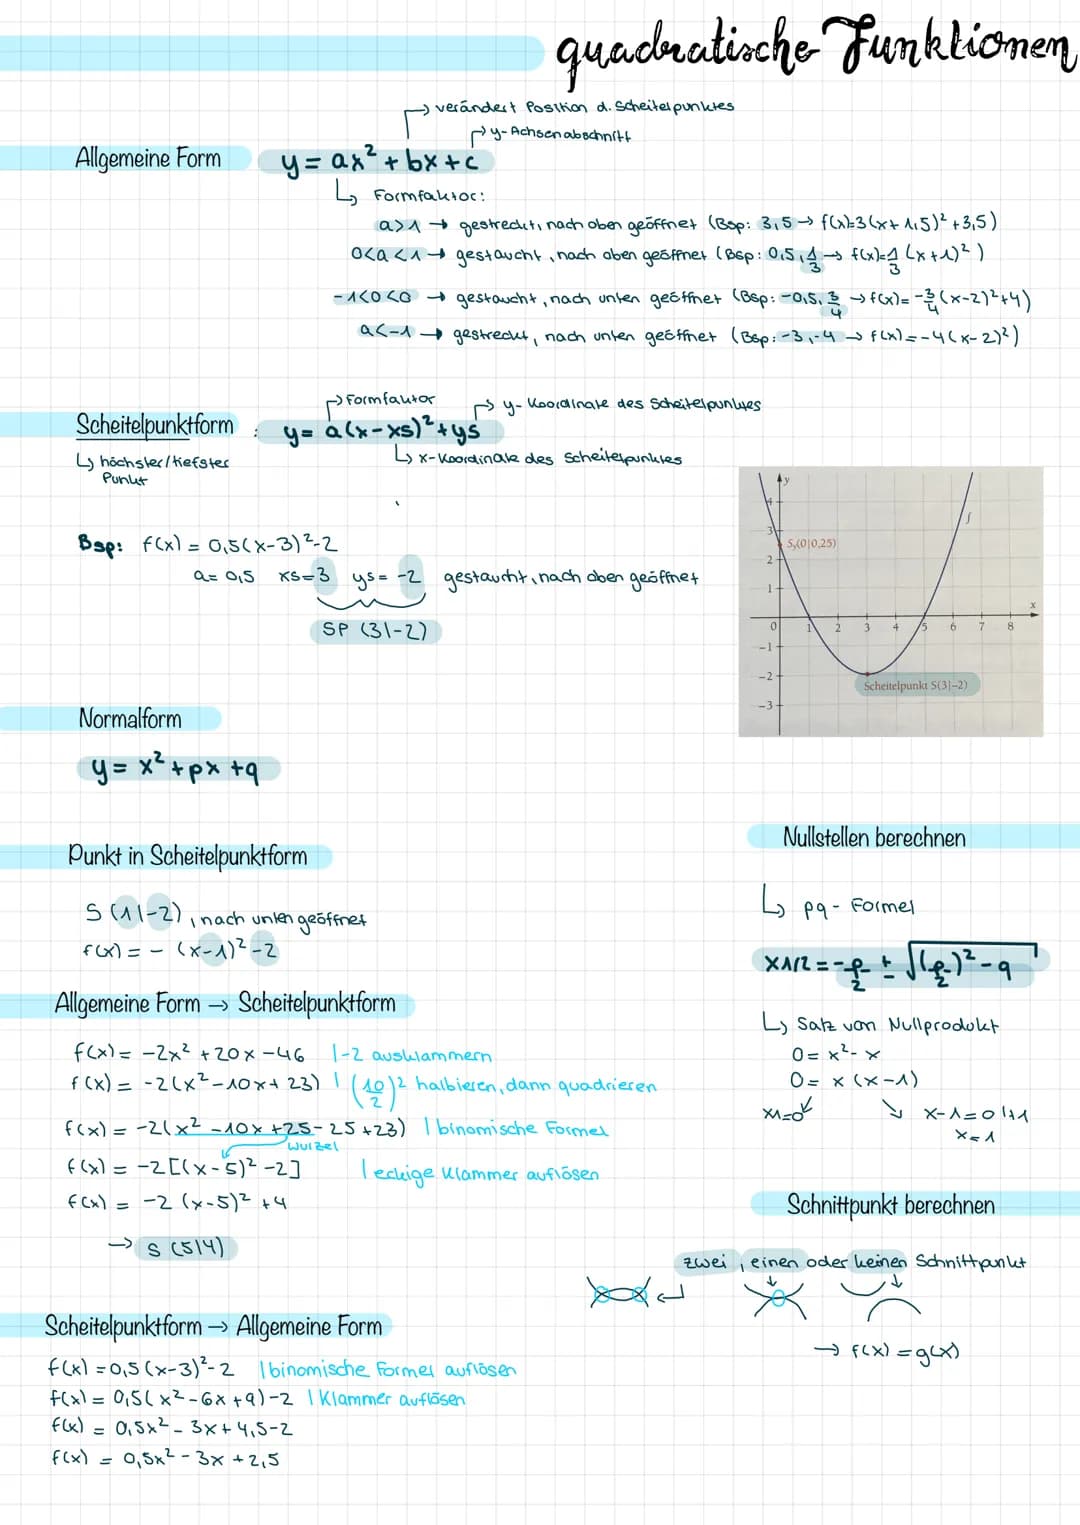 quadratische Funktionen
verändert Position d. Scheitelpunktes
y-Achsenabschnitt
Allgemeine Form
y = ax² + bx + c
Formfaktor:
a>1 → gestreckt, nach oben geöffnet (Bsp: 3,5 → f(x)=3(x+1,5)²+3,5)
0<a<1 → gestaucht, nach oben geöffnet (Bsp: 0,5, 1/3 → f(x)=1/3 (x+1)²)
-1<0<0 → gestaucht, nach unten geöffnet (Bsp: -0,5, 3/4 → f(x)= -3/4(x-2)²+4)
a<-1 → gestreckt, nach unten geöffnet (Bsp: -3,-4 → f(x)=-4(x-2)²)
Formfaktor
y-Koordinate des Scheitelpunktes
Scheitelpunktform : y= a(x-xs)²+ys
↳ höchster/tiefster Punkt
↳ x-Koordinate des Scheitelpunktes
Bsp: f(x) = 0,5(x-3)²-2
a= 0,5 xs=3 ys= -2 gestaucht, nach oben geöffnet
SP (3|-2)
y
4
3
2
1
0 1 2 3 4 5 6 7 8
x
-1
-2
-3
f
Sy(0|0,25)
Scheitelpunkt S(3|-2)
Normalform
y= x²+px+q
Punkt in Scheitelpunktform
S (1|-2), nach unten geöffnet
f(x) = - (x-1)²-2
Allgemeine Form → Scheitelpunktform
f(x)= -2x² +20x -46 |-2 ausklammern
f(x) = -2(x²-10x+23) | (10/2)² halbieren, dann quadrieren
f(x) = -2(x² -10x +25-25+23) | binomische Formel
Wurzel
f(x) = -2[(x-5)² -2] | eckige Klammer auflösen
f(x) = -2 (x-5)² +4
→ S (5|4)
Scheitelpunktform → Allgemeine Form
f(x) =0,5(x-3)²-2 | binomische Formel auflösen
f(x) = 0,5(x²-6x+9)-2 | Klammer auflösen
f(x) = 0,5x² - 3x+4,5-2
f(x) = 0,5x² - 3x +2,5
Nullstellen berechnen
↳ pq-Formel
x1/2 = -p/2 ± √(p/2)² - q
↳ Satz vom Nullprodukt
0= x²-x
0= x (x-1)
x1=0
x-1=0 |+1
x=1
Schnittpunkt berechnen
zwei, einen oder keinen Schnittpunkt
→ f(x) = g(x)